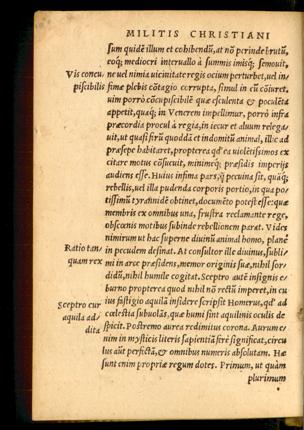 MILITIS CHRISTIANI
sum quidē illum et cohibendū, at nō perinde brutū,
coq; mediocri interuallo à summis imisq; semouit,
Vis concu ne uel nimia uicinitate regis ocium perturbet, uel in
piscibilis fimæ plebis cōtagio corrupta, simul in eū cōiuret.
uim porrò cōcupiscibilē quæ esculenta & poculēta
appetit, quaq; in Venerem impellimur, porrò infra
præcordia procul à regia, in iecur et aluum relega-
uit, ut quasi ferū quoddā et indomitū animal, illic ad
præsepe habitaret, propterea qd' ea uiolētissimos ex
citare motus cōsueuit, minimeq; præsidis imperijs
audiens esse. Huius infima pars, q̄ pecuina sit, quāq;
rebellis, uel illa pudenda corporis portio, in qua po-
tissimū tyrānidē obtinet, documēto potest esse: quæ
membris ex omnibus una, frustra reclamante rege,
obscœnis motibus subinde rebellionem parat. Vides
nimirum ut hac superne diuinū animal homo, planè
Ratio tan in pecudem desinat. At consultor ille diuinus, subli-
quam rex mi in arce præsidens, memor originis suæ, nihil sor-
didū, nihil humile cogitat. Sceptro autē insignis e-
burno propterea quod nihil nō rectū imperet, in cu
Sceptro cur ius fastigio aquilā insidere scripsit Homerus, qd' ad
aquila ad/ cœlestia subuolās, quæ humi sunt aquilinis oculis de
dita spicit. Postremo aurea redimitus corona. Aurum e/
nim in mysticis literis sapientiā ferè significat, circu
lus aūt perfictā, & omnibus numeris absolutam. Hæ
sunt enim propriæ regum dotes. Primum, ut quàm
plurimum